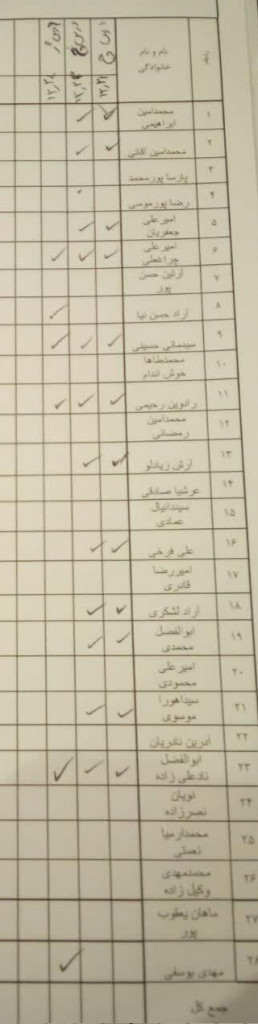 ردیف نام و نام خانوادگی
۱ محمدامین ابراهیمی
۲ محمدامین آقائی
۳ پارسا پورمحمد
۴ رضا پورموسی
۵ امیرعلی جعفریان
۶ امیرعلی چراغعلی
۷ آرتین حسن پور
۸ آراد حسن نیا
۹ سیدمانی حسینی
۱۰ محمدطاها خوش اندام
۱۱ رادوین رحیمی
۱۲ محمدامین رمضانی
۱۳ آرش زیادلو
۱۴ عرشیا صادقی
۱۵ سیددانیال عمادی
۱۶ علی فرخی
۱۷ امیررضا قادری
۱۸ آراد لشکری
۱۹ ابوالفضل محمدی
۲۰ امیرعلی محمودی
۲۱ سیداهورا موسوی
۲۲ آدرین نادریان
۲۳ ابوالفضل نادعلی زاده
۲۴ نویان نصرزاده
۲۵ محمدارمیا نعمتی
۲۶ محمدمهدی وکیل زاده
۲۷ ماهان یعقوب پور
۲۸ مهدی یوسفی
جمع کل